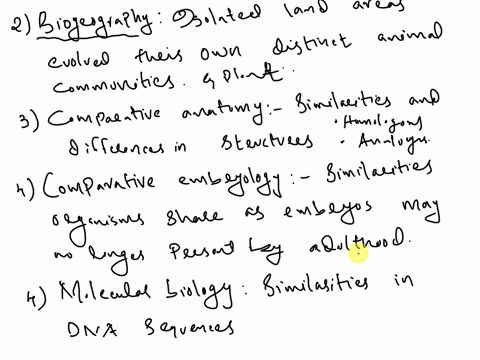 2) Biogeography: Isolated land areas
evolved their own distinct animal
communities. & Plant.
3) Comparative anatomy:- Similarities and
differences in structures • Homologous
• Analogus.
4) Comparative embryology:- Similarities
organisms share as embryos may
no longer Present by adulthood.
4) Molecular biology: Similarities in
DNA Sequences